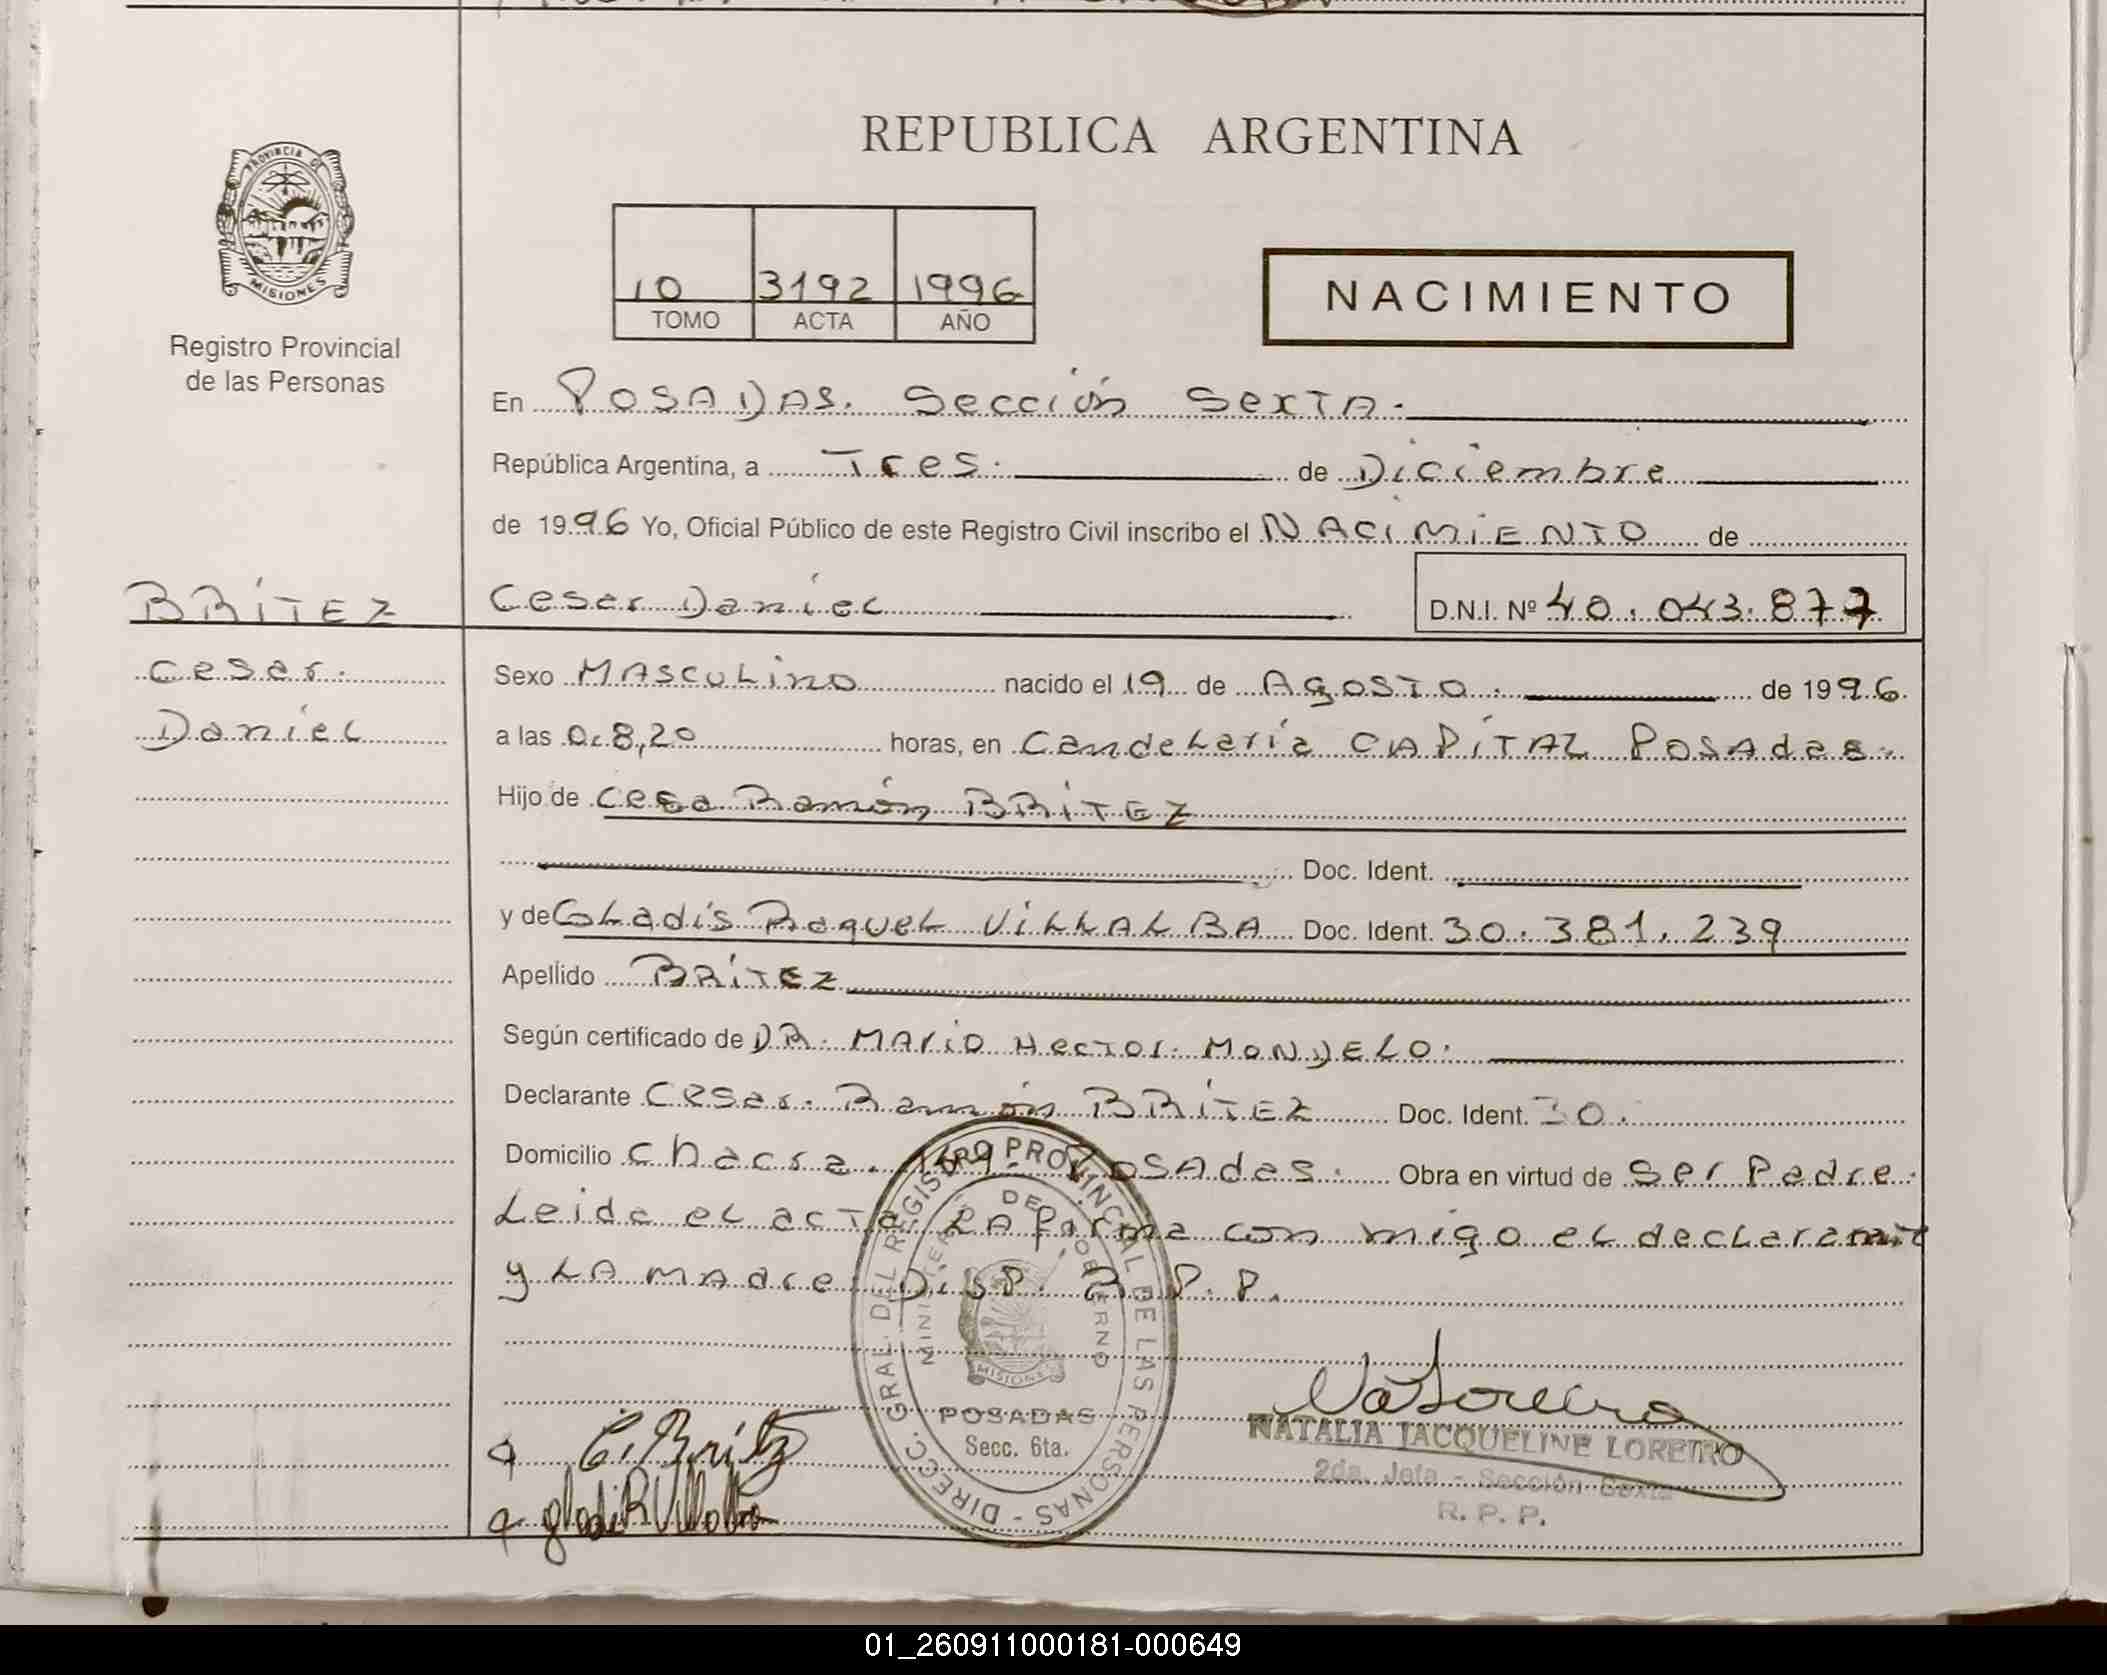 REPUBLICA ARGENTINA
PROVINCIA DE MISIONES
Registro Provincial
de las Personas
10 3192 1996
TOMO ACTA AÑO
NACIMIENTO
En POSADAS. Sección Sexta.
República Argentina, a Tres. de Diciembre
de 1996 Yo, Oficial Público de este Registro Civil inscribo el NACIMIENTO de
BRÍTEZ Cesar Daniel D.N.I. Nº 40.043.877
Cesar. Sexo MASCULINO nacido el 19 de AGOSTO. de 1996.
Daniel a las 08,20 horas, en Candelaria CAPITAL POSAdas.
Hijo de Cesa Ramón BRÍTEZ
Doc. Ident.
y de GLadis Raquel VILLALBA Doc. Ident. 30.381.239
Apellido BRÍTEZ
Según certificado de DR. MARIO HecTOr MONDELO.
Declarante Cesar. Ramón BRÍTEZ Doc. Ident. 30.
Domicilio Chacra. POSAdas. Obra en virtud de Ser Padre.
Leida el acta LA firma con migo el declarante
y LA MAdre. Disp. R.P.P.
DIRECC. GRAL. DEL REGISTRO PROVINCIAL DE LAS PERSONAS
MINISTERIO DE GOBIERNO
MISIONES
POSADAS
Secc. 6ta.
C. Britez
gladi R Villalba
NaLoreiro
NATALIA JACQUELINE LOREIRO
2da. Jefa - Sección Sexta
R. P. P.
01_260911000181-000649